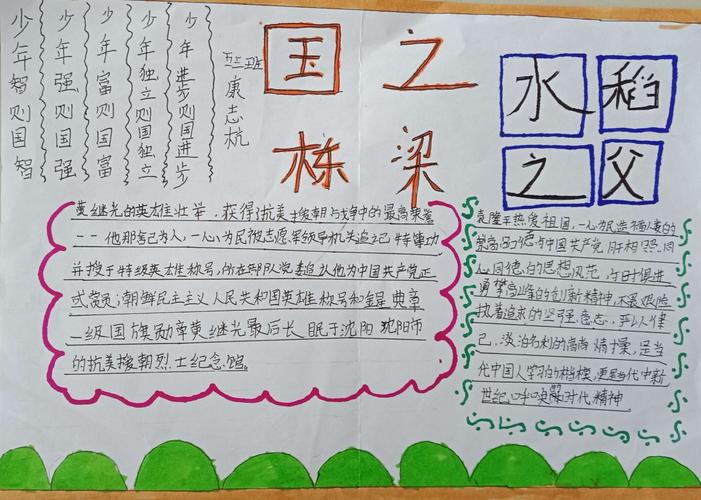 少年智则国智
少年强则国强
少年富则国富
少年独立则国独立
少年进步则国进步
五三班
康志杭
国之
栋梁
水稻
之父
黄继光的英雄壮举,获得抗美援朝战争中的最高荣誉
一一他那舍己为人,一心为民被志愿军领导机关追记特等功,
并授于特级英雄称号,所在部队党委追认他为中国共产党正
式党员;朝鲜民主主义人民共和国英雄称号和金星奖章
一级国旗勋章黄继光最后长眠于沈阳 沈阳市
的抗美援朝烈士纪念馆。
袁隆平热爱祖国,一心为民造福人类的
崇高品德与中国共产党肝胆照同
心同德的思想风范,与时俱进
勇攀高峰的创新精神不畏艰险
执着追求的坚强意志,严以律
己,淡泊名利的高尚情操,是当
代中国人学习的楷模,更是当代中新
世纪呼唤的时代精神